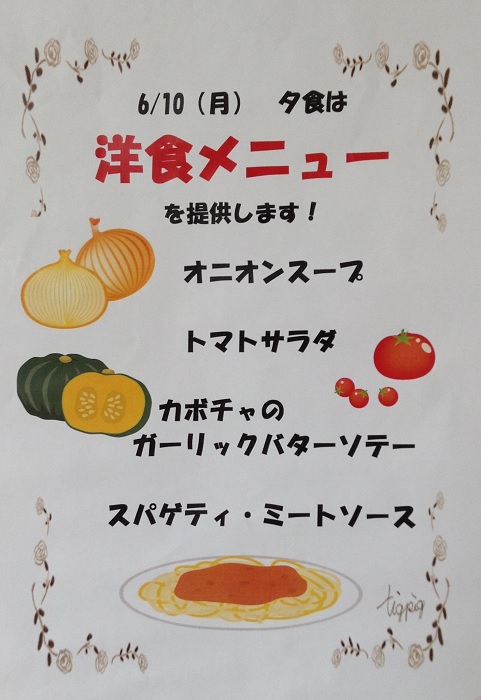 6/10（月）　夕食は
洋食メニュー
を提供します！
オニオンスープ
トマトサラダ
カボチャの
ガーリックバターソテー
スパゲティ・ミートソース
tigpig